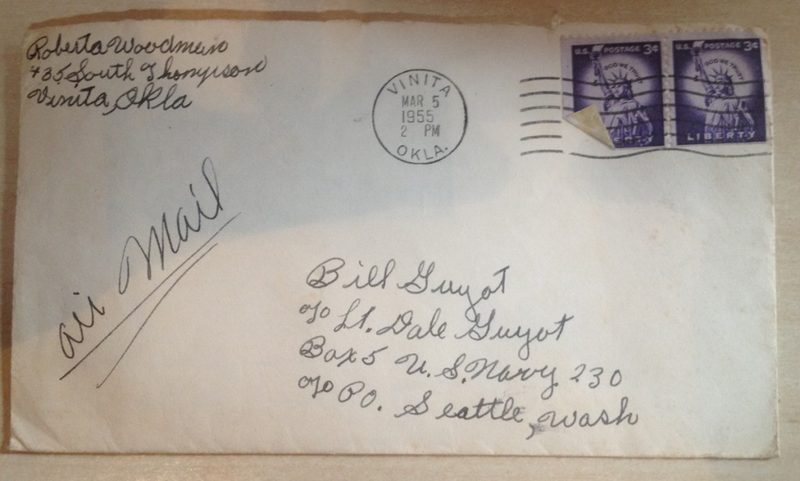 Roberta Woodman
435 South Thompson
Vinita, Okla
VINITA
MAR 5
1955
2 PM
OKLA.
U.S. POSTAGE 3¢
IN GOD WE TRUST
ERTY
U.S. POSTAGE 3¢
IN GOD WE TRUST
LIBERTY
air Mail
Bill Guyot
c/o Lt. Dale Guyot
Box 5 U.S. Navy 230
c/o P.O. Seattle, Wash